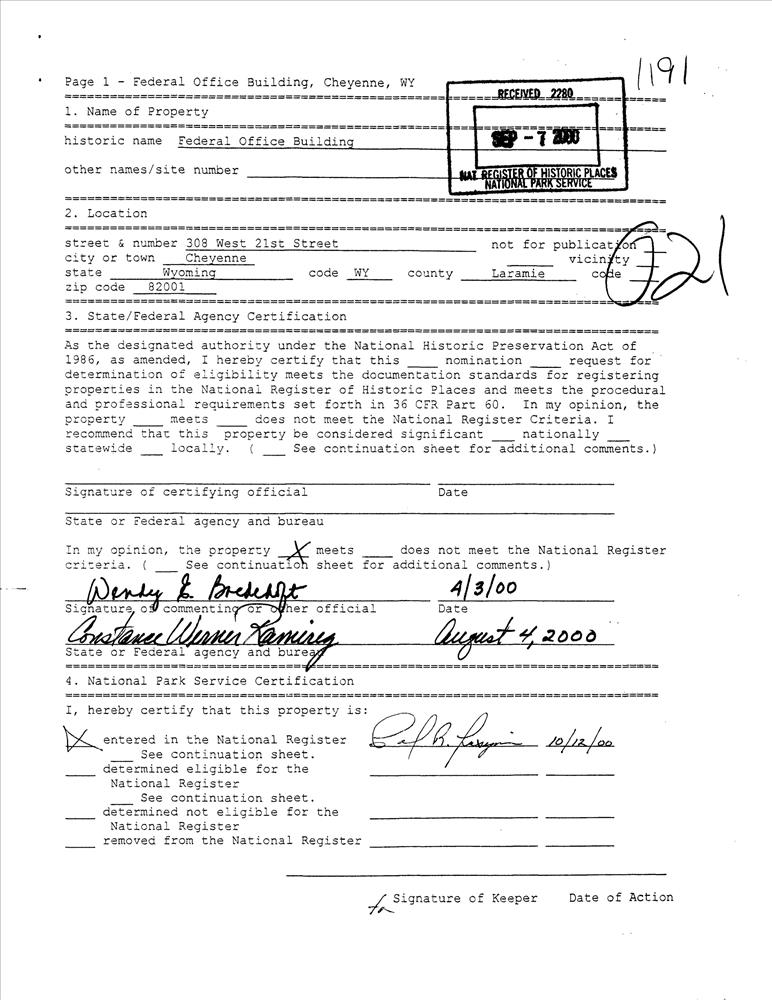 1191
Page 1 - Federal Office Building, Cheyenne, WY
RECEIVED 2280
1. Name of Property
SEP - 7 2000
historic name Federal Office Building
other names/site number
NAT. REGISTER OF HISTORIC PLACES
NATIONAL PARK SERVICE
2. Location
street & number 308 West 21st Street not for publication
city or town Cheyenne vicinity
state Wyoming code WY county Laramie code 021
zip code 82001
3. State/Federal Agency Certification
As the designated authority under the National Historic Preservation Act of
1986, as amended, I hereby certify that this ____ nomination ____ request for
determination of eligibility meets the documentation standards for registering
properties in the National Register of Historic Places and meets the procedural
and professional requirements set forth in 36 CFR Part 60. In my opinion, the
property ____ meets ____ does not meet the National Register Criteria. I
recommend that this property be considered significant ___ nationally ___
statewide ___ locally. ( ___ See continuation sheet for additional comments.)
Signature of certifying official Date
State or Federal agency and bureau
In my opinion, the property X meets ____ does not meet the National Register
criteria. ( ___ See continuation sheet for additional comments.)
Wendy E. Bredehoft 4/3/00
Signature of commenting or other official Date
Constance Werner Ramirez August 4, 2000
State or Federal agency and bureau
4. National Park Service Certification
I, hereby certify that this property is:
X entered in the National Register 10/12/00
___ See continuation sheet.
____ determined eligible for the
National Register
___ See continuation sheet.
____ determined not eligible for the
National Register
____ removed from the National Register
for Signature of Keeper Date of Action